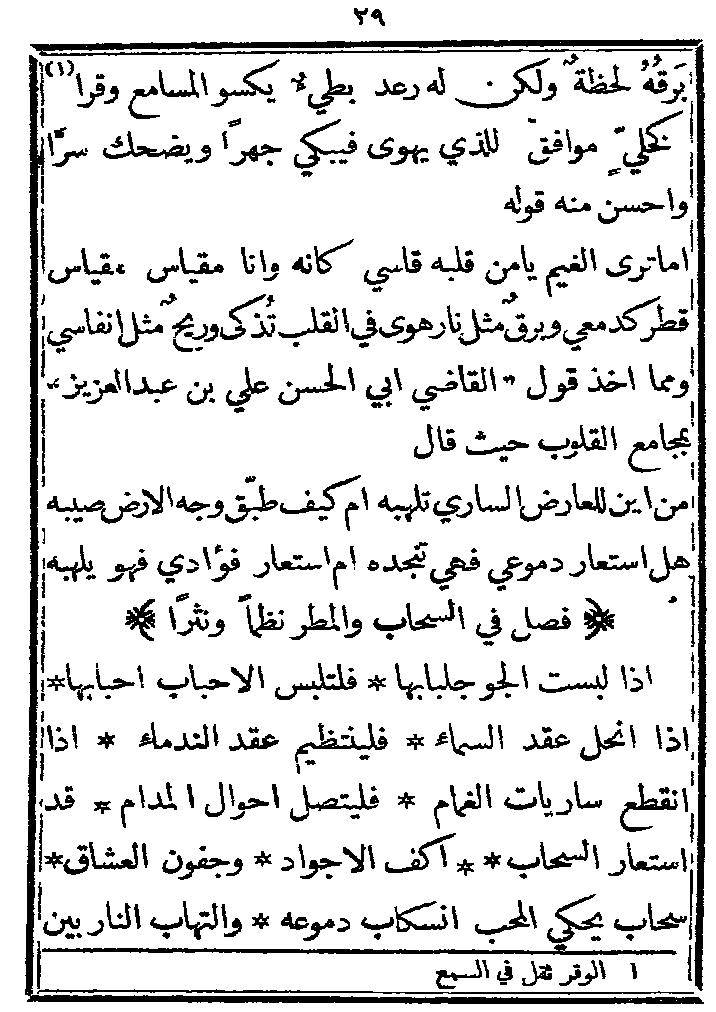 ٢٩
بَرقهُ لحظةٌ ولكن له رعد بطيءٌ يكسو المسامع وقرا (١)
كخليٍّ موافق للذي يهوى فيبكي جهراً ويضحك سرًّا
واحسن منه قوله
اماترى الغيم يامن قلبه قاسي كانه وانا مقياس بمقياس
قطر كدمعي وبرقٌ مثل نار هوى في القلب تُذكى وريحٌ مثل انفاسي
ومما اخذ قول " القاضي ابي الحسن علي بن عبدالعزيز "
بمجامع القلوب حيث قال
من اين للعارض الساري تلهبه ام كيف طبّق وجه الارض صيبه
هل استعار دموعي فهي تنجده ام استعار فؤادي فهو يلهبه
﴿ فصل في السحاب والمطر نظماً ونثرًا ﴾
اذا لبست الجو جلبابها * فلتلبس الاحباب احبابها *
اذا انحل عقد السماء * فلينتظيم عقد الندماء * اذا
انقطع ساريات الغمام * فليتصل احوال المدام * قد
استعار السحاب * * اكف الاجواد * وجفون العشاق *
سحاب يحكي المحب انسكاب دموعه * والتهاب النار بين
١ الوقر ثقل في السمع